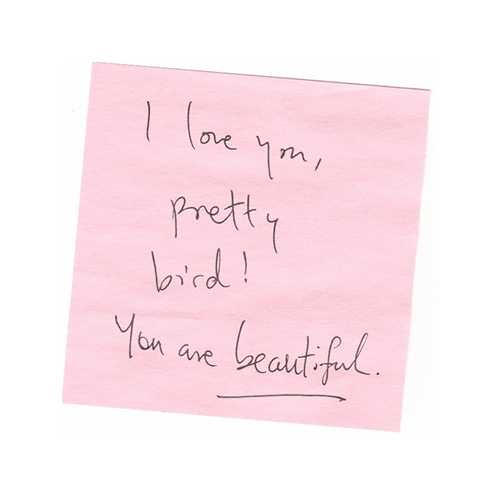 I love you,
pretty
bird!
You are beautiful.